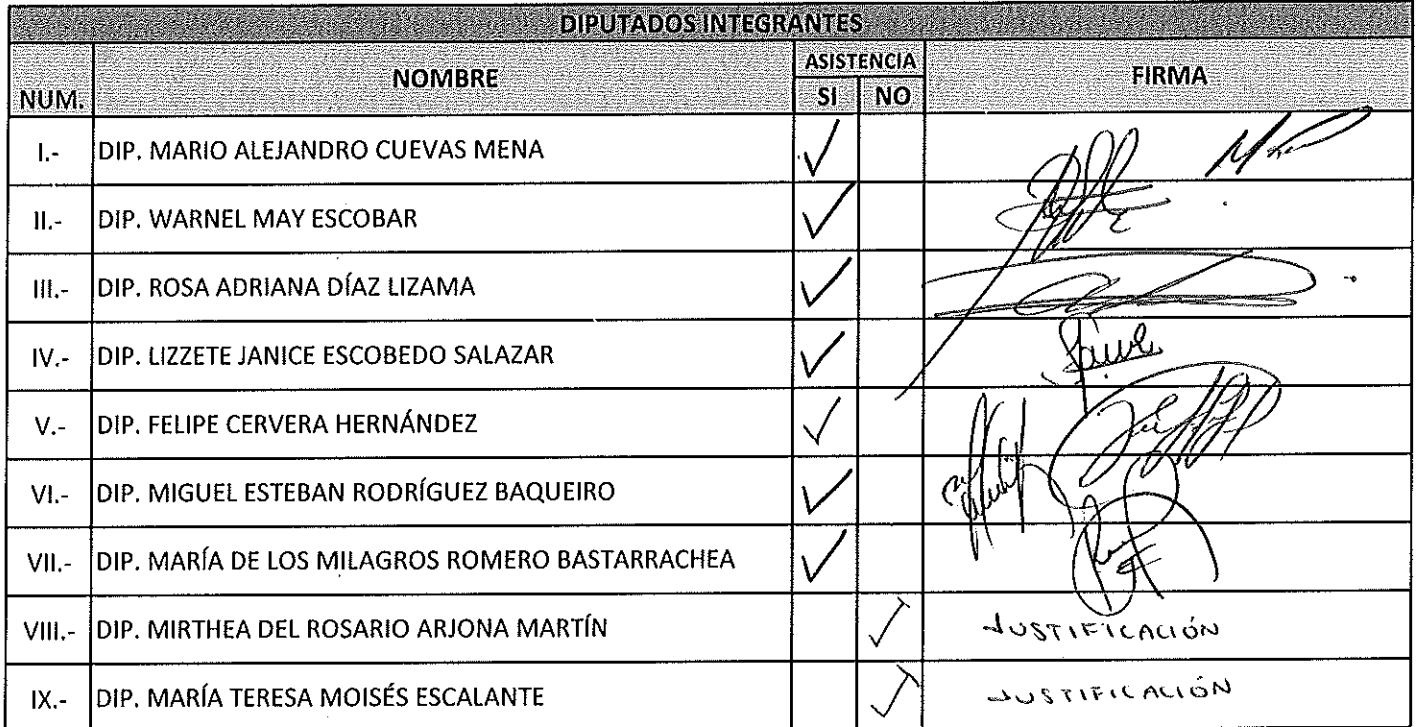 DIPUTADOS INTEGRANTES
NUM. NOMBRE ASISTENCIA FIRMA
SI NO
I.- DIP. MARIO ALEJANDRO CUEVAS MENA
II.- DIP. WARNEL MAY ESCOBAR
III.- DIP. ROSA ADRIANA DÍAZ LIZAMA
IV.- DIP. LIZZETE JANICE ESCOBEDO SALAZAR
V.- DIP. FELIPE CERVERA HERNÁNDEZ
VI.- DIP. MIGUEL ESTEBAN RODRÍGUEZ BAQUEIRO
VII.- DIP. MARÍA DE LOS MILAGROS ROMERO BASTARRACHEA
VIII.- DIP. MIRTHEA DEL ROSARIO ARJONA MARTÍN JUSTIFICACIÓN
IX.- DIP. MARÍA TERESA MOISÉS ESCALANTE JUSTIFICACIÓN